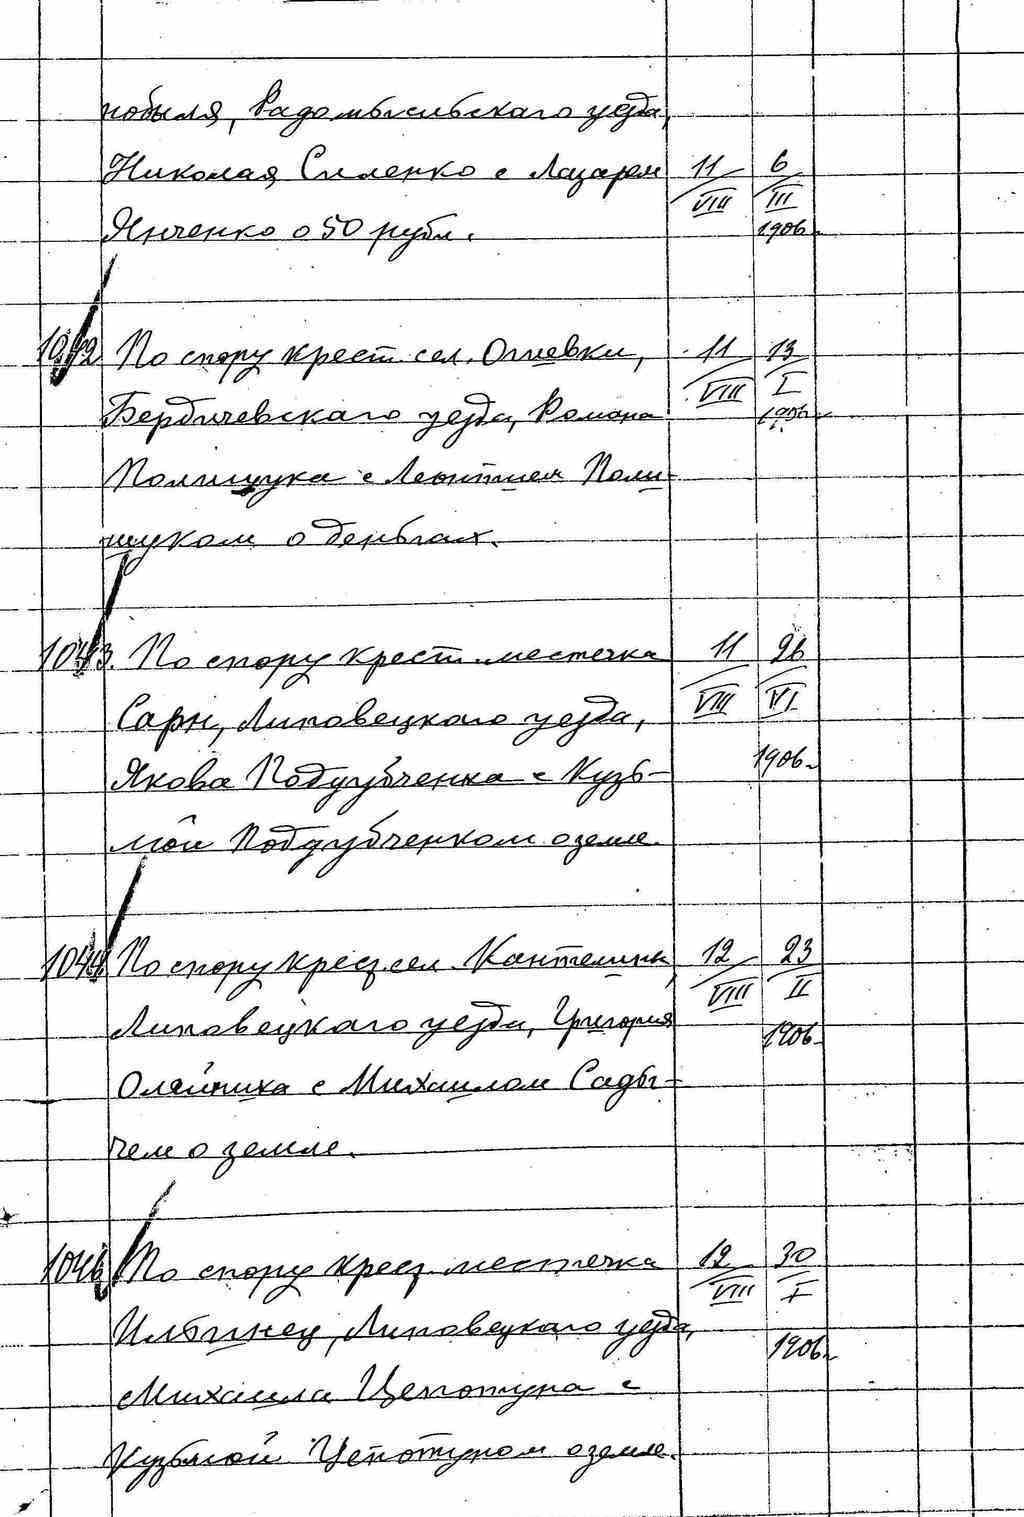 нобыля, Радомысльскаго уезда,
Николая Силенко с Лазарем 11 6
VIII III
Янченко о 50 рубл. 1906 г.
1042 По спору крест. сел. Огиевки, 11 13
VIII I
Бердичевскаго уезда, Романа 1906 г.
Полищука с Леонтием Поли-
щуком о деньгах.
1043. По спору крест. местечка 11 26
VIII VI
Сарн, Липовецкаго уезда,
1906 г.
Якова Поддубченка с Кузь-
мой Поддубченком о земле.
1044 По спору крест. сел. Кантелины, 12 23
VIII II
Липовецкаго уезда, Григория 1906
Олейника с Михаилом Сады-
чем о земле.
1046 По спору крест. местечка 12 30
VIII I
Ильинец, Липовецкаго уезда, 1906 г.
Михаила с
Кузьмой о земле.